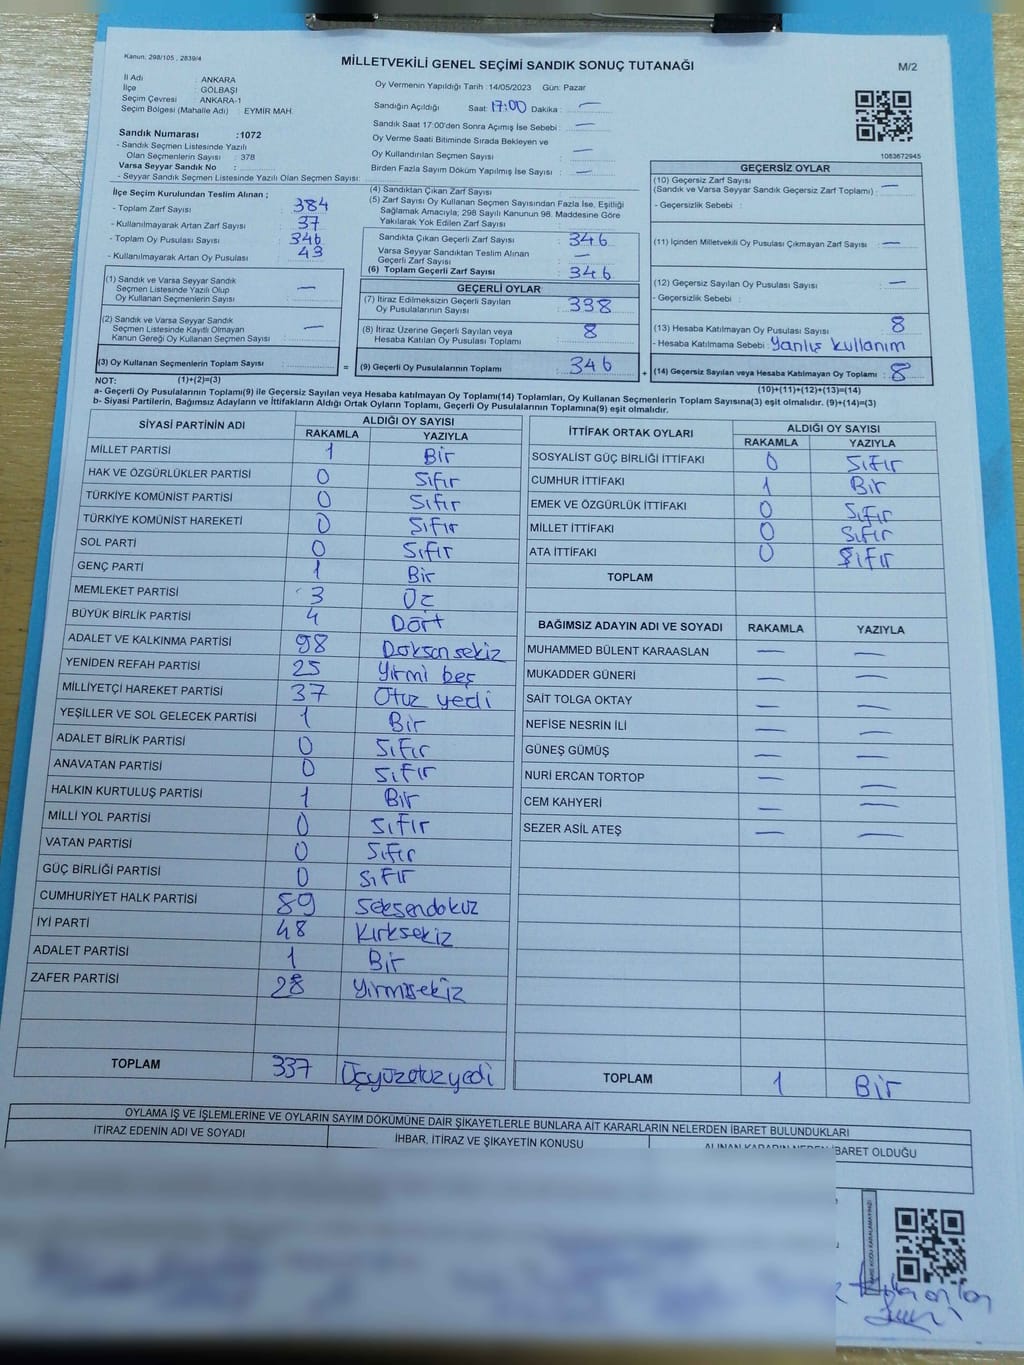 Kanun: 298/105 , 2839/4
MİLLETVEKİLİ GENEL SEÇİMİ SANDIK SONUÇ TUTANAĞI
M/2
İl Adı : ANKARA
İlçe : GÖLBAŞI
Seçim Çevresi : ANKARA-1
Seçim Bölgesi (Mahalle Adı) : EYMİR MAH.
Oy Vermenin Yapıldığı Tarih :14/05/2023 Gün: Pazar
Sandığın Açıldığı Saat: 17:00 Dakika : —
Sandık Saat 17:00'den Sonra Açımış İse Sebebi : —
Oy Verme Saati Bitiminde Sırada Bekleyen ve
Oy Kullandırılan Seçmen Sayısı : —
Birden Fazla Sayım Döküm Yapılmış İse Sayısı : —
1083672945
Sandık Numarası :1072
- Sandık Seçmen Listesinde Yazılı
Olan Seçmenlerin Sayısı : 378
Varsa Seyyar Sandık No :
- Seyyar Sandık Seçmen Listesinde Yazılı Olan Seçmen Sayısı:
İlçe Seçim Kurulundan Teslim Alınan ;
- Toplam Zarf Sayısı : 384
- Kullanılmayarak Artan Zarf Sayısı : 37
- Toplam Oy Pusulası Sayısı : 346
- Kullanılmayarak Artan Oy Pusulası : 43
(1) Sandık ve Varsa Seyyar Sandık
Seçmen Listesinde Yazılı Olup
Oy Kullanan Seçmenlerin Sayısı : —
(2) Sandık ve Varsa Seyyar Sandık
Seçmen Listesinde Kayıtlı Olmayan
Kanun Gereği Oy Kullanan Seçmen Sayısı : —
(3) Oy Kullanan Seçmenlerin Toplam Sayısı :
(1)+(2)=(3)
(4) Sandıktan Çıkan Zarf Sayısı :
(5) Zarf Sayısı Oy Kullanan Seçmen Sayısından Fazla İse, Eşitliği
Sağlamak Amacıyla; 298 Sayılı Kanunun 98. Maddesine Göre
Yakılarak Yok Edilen Zarf Sayısı :
Sandıkta Çıkan Geçerli Zarf Sayısı : 346
Varsa Seyyar Sandıktan Teslim Alınan
Geçerli Zarf Sayısı : —
(6) Toplam Geçerli Zarf Sayısı : 346
GEÇERLİ OYLAR
(7) İtiraz Edilmeksizin Geçerli Sayılan
Oy Pusulalarının Sayısı : 338
(8) İtiraz Üzerine Geçerli Sayılan veya
Hesaba Katılan Oy Pusulası Toplamı : 8
= (9) Geçerli Oy Pusulalarının Toplamı : 346 +
GEÇERSİZ OYLAR
(10) Geçersiz Zarf Sayısı
(Sandık ve Varsa Seyyar Sandık Geçersiz Zarf Toplamı) : —
- Geçersizlik Sebebi :
(11) İçinden Milletvekili Oy Pusulası Çıkmayan Zarf Sayısı : —
(12) Geçersiz Sayılan Oy Pusulası Sayısı : —
- Geçersizlik Sebebi :
(13) Hesaba Katılmayan Oy Pusulası Sayısı : 8
- Hesaba Katılmama Sebebi : Yanlış kullanım
(14) Geçersiz Sayılan veya Hesaba Katılmayan Oy Toplamı : 8
(10)+(11)+(12)+(13)=(14)
NOT:
a- Geçerli Oy Pusulalarının Toplamı(9) ile Geçersiz Sayılan veya Hesaba katılmayan Oy Toplamı(14) Toplamları, Oy Kullanan Seçmenlerin Toplam Sayısına(3) eşit olmalıdır. (9)+(14)=(3)
b- Siyasi Partilerin, Bağımsız Adayların ve İttifakların Aldığı Ortak Oyların Toplamı, Geçerli Oy Pusulalarının Toplamına(9) eşit olmalıdır.
SİYASİ PARTİNİN ADI
ALDIĞI OY SAYISI
RAKAMLA YAZIYLA
MİLLET PARTİSİ 1 Bir
HAK VE ÖZGÜRLÜKLER PARTİSİ 0 Sıfır
TÜRKİYE KOMÜNİST PARTİSİ 0 Sıfır
TÜRKİYE KOMÜNİST HAREKETİ 0 Sıfır
SOL PARTİ 0 Sıfır
GENÇ PARTİ 1 Bir
MEMLEKET PARTİSİ 3 Üç
BÜYÜK BİRLİK PARTİSİ 4 Dört
ADALET VE KALKINMA PARTİSİ 98 Doksan sekiz
YENİDEN REFAH PARTİSİ 25 Yirmi beş
MİLLİYETÇİ HAREKET PARTİSİ 37 Otuz yedi
YEŞİLLER VE SOL GELECEK PARTİSİ 1 Bir
ADALET BİRLİK PARTİSİ 0 Sıfır
ANAVATAN PARTİSİ 0 Sıfır
HALKIN KURTULUŞ PARTİSİ 1 Bir
MİLLİ YOL PARTİSİ 0 Sıfır
VATAN PARTİSİ 0 Sıfır
GÜÇ BİRLİĞİ PARTİSİ 0 Sıfır
CUMHURİYET HALK PARTİSİ 89 Seksendokuz
İYİ PARTİ 48 Kırksekiz
ADALET PARTİSİ 1 Bir
ZAFER PARTİSİ 28 Yirmisekiz
TOPLAM 337 Üçyüzotuzyedi
İTTİFAK ORTAK OYLARI
ALDIĞI OY SAYISI
RAKAMLA YAZIYLA
SOSYALİST GÜÇ BİRLİĞİ İTTİFAKI 0 Sıfır
CUMHUR İTTİFAKI 1 Bir
EMEK VE ÖZGÜRLÜK İTTİFAKI 0 Sıfır
MİLLET İTTİFAKI 0 Sıfır
ATA İTTİFAKI 0 Sıfır
TOPLAM
BAĞIMSIZ ADAYIN ADI VE SOYADI RAKAMLA YAZIYLA
MUHAMMED BÜLENT KARAASLAN — —
MUKADDER GÜNERİ — —
SAİT TOLGA OKTAY — —
NEFİSE NESRİN İLİ — —
GÜNEŞ GÜMÜŞ — —
NURİ ERCAN TORTOP — —
CEM KAHYERİ — —
SEZER ASİL ATEŞ — —
TOPLAM 1 Bir
OYLAMA İŞ VE İŞLEMLERİNE VE OYLARIN SAYIM DÖKÜMÜNE DAİR ŞİKAYETLERLE BUNLARA AİT KARARLARIN NELERDEN İBARET BULUNDUKLARI
İTİRAZ EDENİN ADI VE SOYADI İHBAR, İTİRAZ VE ŞİKAYETİN KONUSU ALINAN KARARIN NEDEN İBARET OLDUĞU